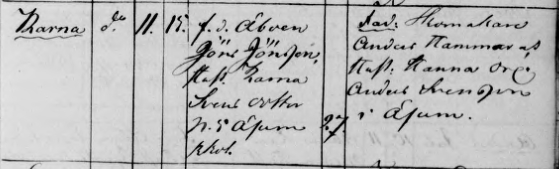 Karna do 11. 15. f. d. Åboen
Jöns Jönsson,
Hust. Karna
Svens dotter
N. 5 Åsum 27
Fad: Skomakare
Anders Hammar
Hust: Hanna
Anders Svensson
i Åsum.